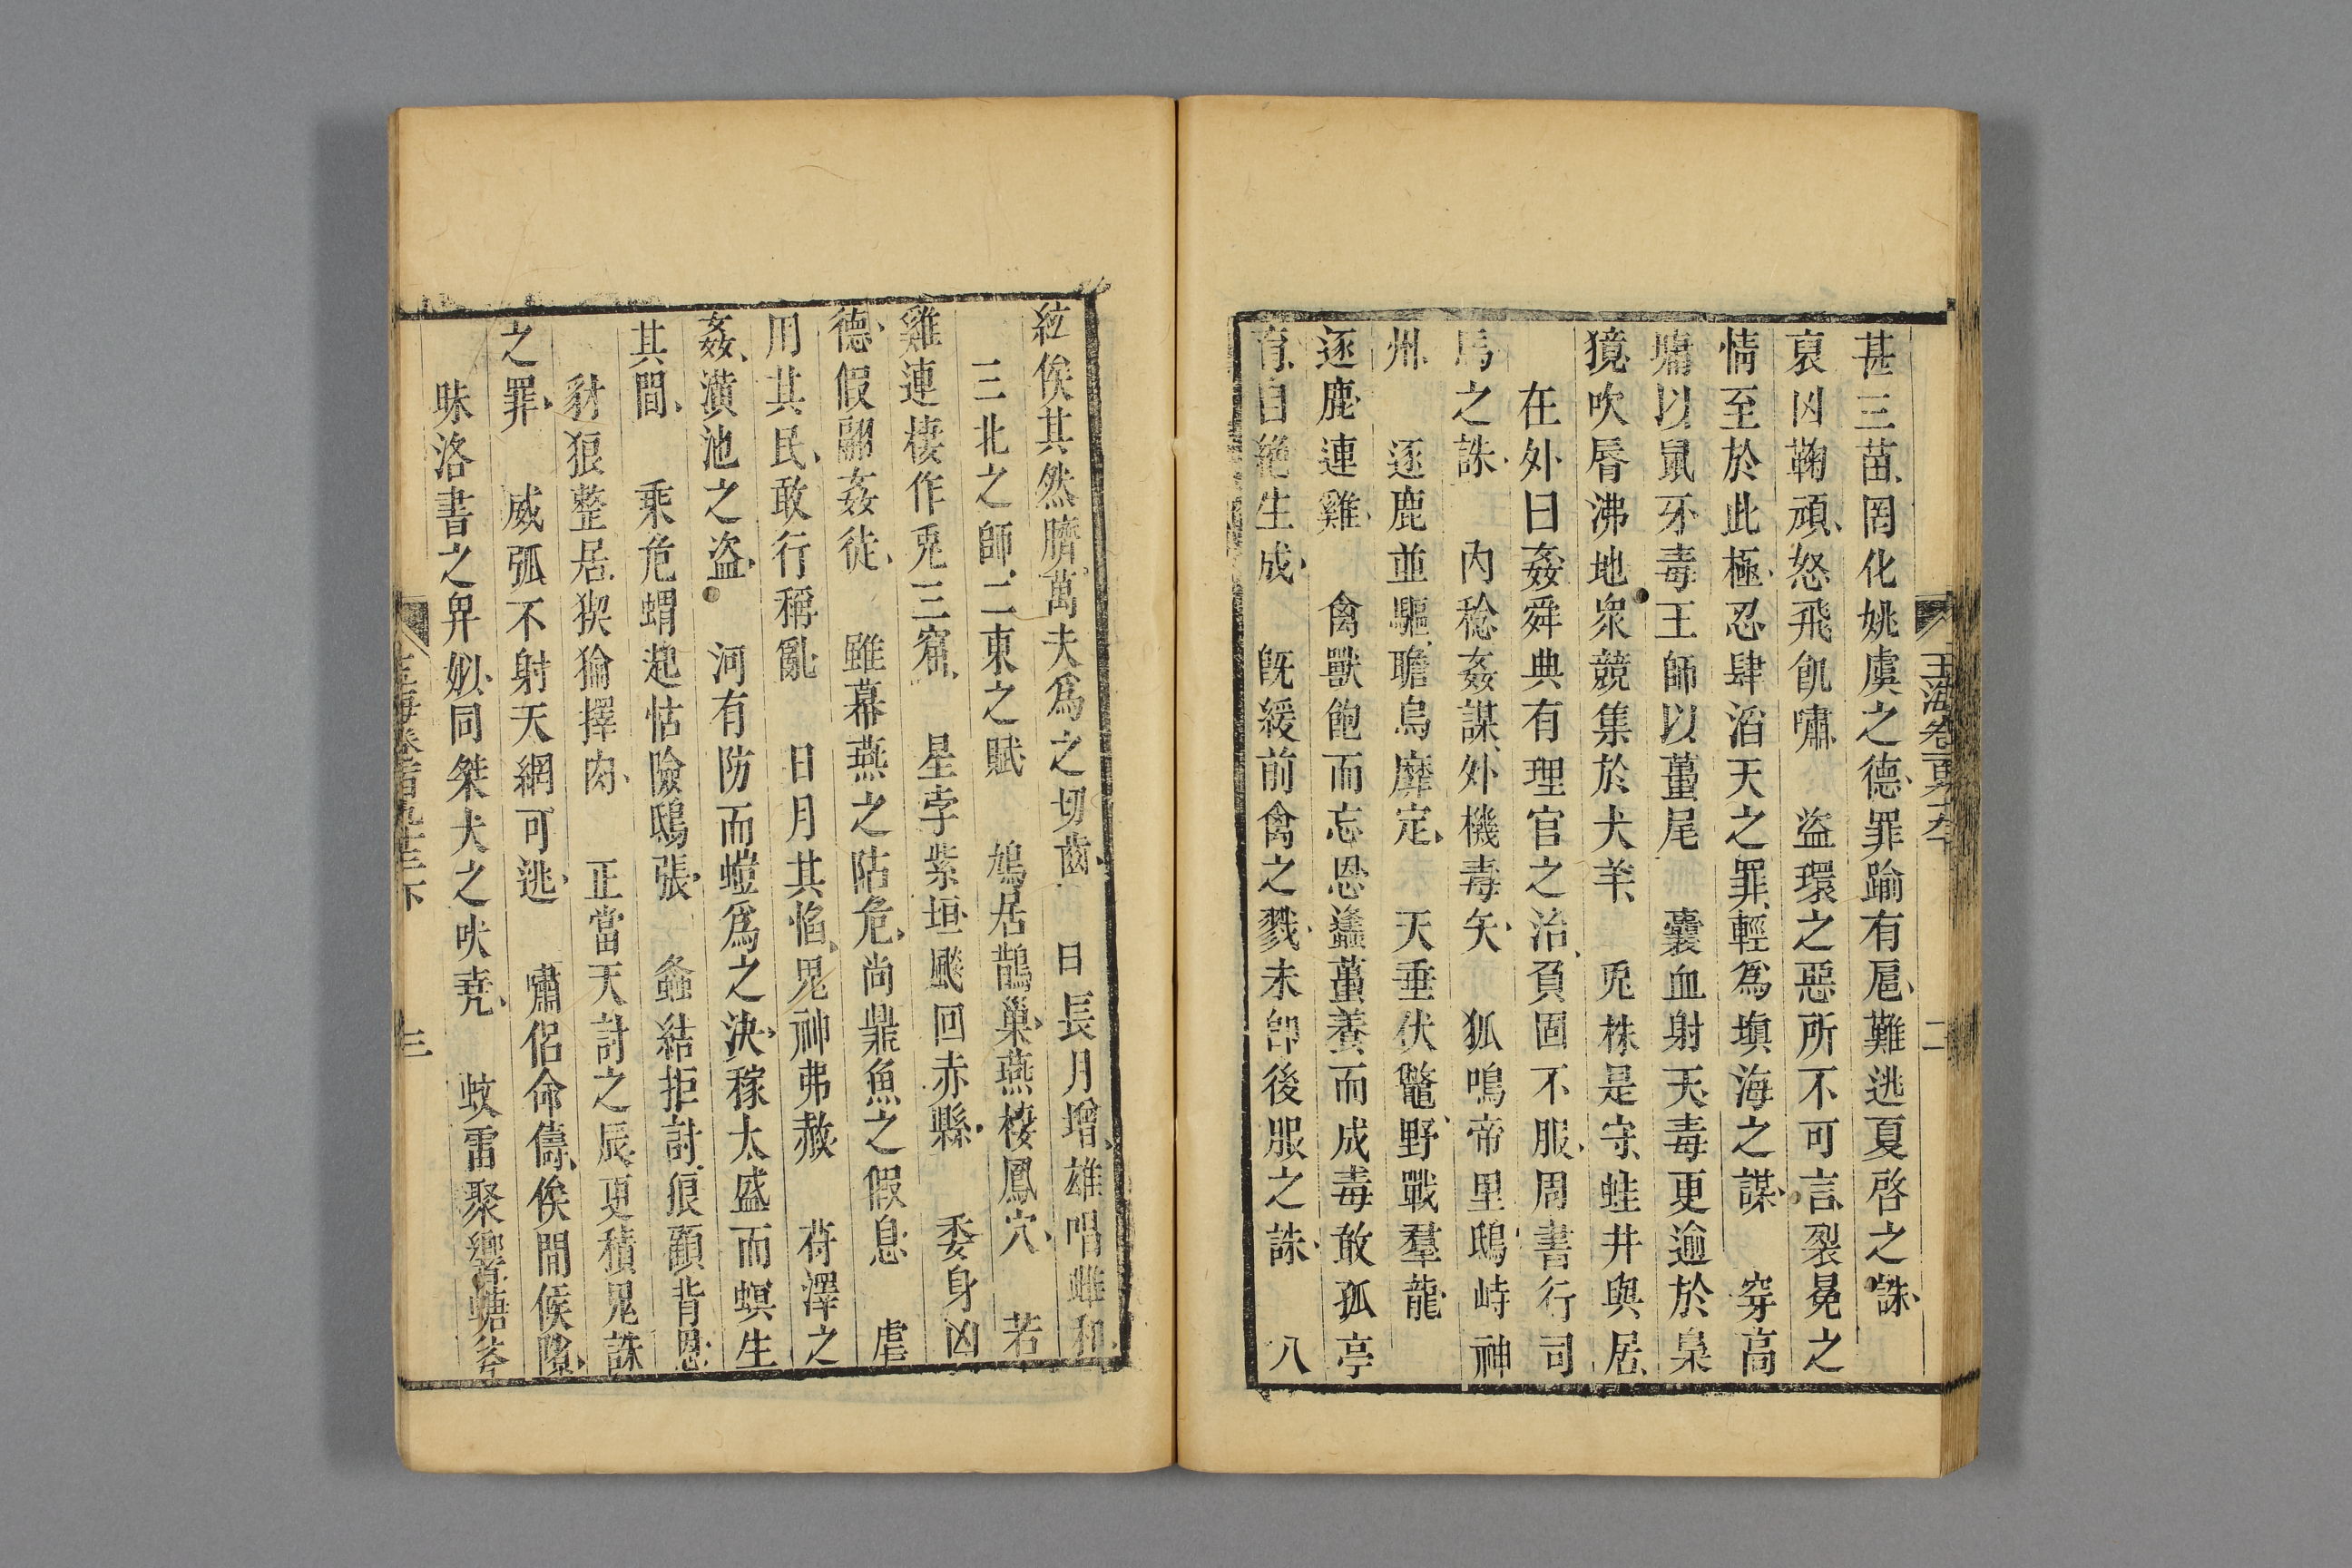 甚三苗罔化姚虞之德罪踰有扈難逃夏啓之誅
裒凶鞠頑怒飛飢嘯　盜環之惡所不可言裂冕之
情至於此極忍肆滔天之罪輕爲塡海之謀　穿高
墉以鼠牙毒王師以蠆尾　囊血射天毒更逾於梟
獍吠脣沸地衆競集於犬羊　兎株是守蛙井與居
在外曰姦舜典有理官之治負固不服周書行司
馬之誅　內稔姦謀外機毒矢　狐鳴帝里鴟峙神
州　逐鹿並驅瞻烏靡定　天垂伏鼈野戰羣龍
逐鹿連雞　禽獸飽而忘恩蠭蠆養而成毒敢孤亭
育自絕生成　旣緩前禽之戮未卽後服之誅　八
紘俟其然臍萬夫爲之切齒　日長月增雄唱雌和
三北之師二東之賦　鳩居鵲巢燕棲鳳穴　若
雞連棲作兎三窟　星孛紫垣飈回赤縣　委身凶
德假翮姦徒　雖幕燕之阽危尚鼎魚之假息　虐
用其民敢行稱亂　日月其慆鬼神弗赦　萑澤之
姦潢池之盜　河有防而螘爲之決稼太盛而螟生
其間　乘危蝟起怙險鴟張　螽結拒討很顧背恩
豺狼整居猰㺄擇肉　正當天討之辰更積鬼誅
之罪　威弧不射天網可逃　嘯侶命儔俟間候隙
昧洛書之畀姒同桀犬之吠堯　蚊雷聚響螗斧
玉海卷
二
三